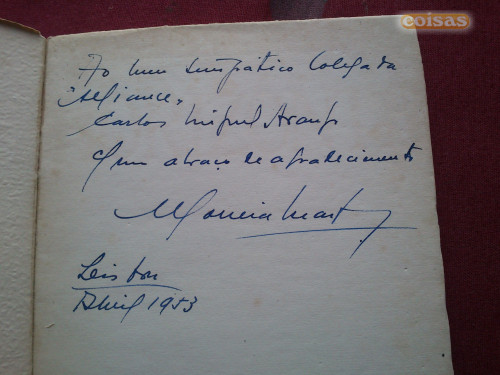 coisas
Ao meu simpático colega da
"Alliance",
Carlos Miguel Araujo
com um abraço de agradecimento
Lisboa
Abril 1953